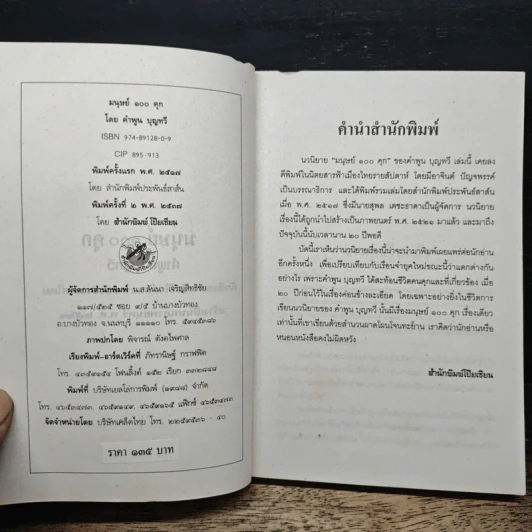 มนุษย์ ๑๐๐ คุก
โดย คำพูน บุญทวี
ISBN 974-89128-0-9
CIP 895-913
พิมพ์ครั้งแรก พ.ศ. ๒๕๑๗
โดย สำนักพิมพ์ประพันธ์สาส์น
พิมพ์ครั้งที่ ๒ พ.ศ. ๒๕๓๗
โดย สำนักพิมพ์โป๊ยเซียน
ผู้จัดการสำนักพิมพ์ น.ส.ลันนา เจริญสิทธิชัย
๑๑๗/๕๒๕ ซอย ๔/๕ บ้านบางบัวทอง
อ.บางบัวทอง จ.นนทบุรี ๑๑๑๑๐ โทร.
ภาพปกโดย พิจารณ์ ตังคไพศาล
เรียงพิมพ์-อาร์ตเวิร์คที่ ภัทรานิษฐ์ กราฟฟิค
โทร. ๔๓๕๙๑๕๔ โฟนลิ้งค์ ๑๕๒ เรียก ๓๓๒๘๔๘
พิมพ์ที่ บริษัทเยลโล่การพิมพ์ (๑๙๘๘) จำกัด
โทร. แฟ๊กซ์
จัดจำหน่ายโดย บริษัทเคล็ดไทย โทร. ๒๒๕๙๕๓๖ - ๔๐
ราคา ๑๓๕ บาท
คำนำสำนักพิมพ์
นวนิยาย "มนุษย์ ๑๐๐ คุก" ของคำพูน บุญทวี เล่มนี้ เคยลง
ตีพิมพ์ในนิตยสารฟ้าเมืองไทยรายสัปดาห์ โดยมีอาจินต์ ปัญจพรรค์
เป็นบรรณาธิการ และได้พิมพ์รวมเล่มโดยสำนักพิมพ์ประพันธ์สาส์น
เมื่อ พ.ศ. ๒๕๑๗ ซึ่งมีนายสุพล เตชะธาดาเป็นผู้จัดการ นวนิยาย
เรื่องนี้ได้ถูกนำไปสร้างเป็นภาพยนตร์ พ.ศ. ๒๕๒๑ มาแล้ว และมาถึง
ปัจจุบันนี้นับเวลานาน ๒๐ ปีพอดี
บัดนี้เราเห็นว่านวนิยายเรื่องนี้น่าจะนำมาพิมพ์เผยแพร่ต่อนักอ่าน
อีกครั้งหนึ่ง เพื่อเปรียบเทียบกับเรือนจำยุคใหม่ขณะนี้ว่าแตกต่างกัน
อย่างไร เพราะคำพูน บุญทวี ได้สะท้อนชีวิตคนคุกและที่เกี่ยวข้อง เมื่อ
๒๐ ปีก่อนไว้ในเรื่องค่อนข้างละเอียด โดยเฉพาะอย่างยิ่งในชีวิตการ
เขียนนวนิยายของ คำพูน บุญทวี นั้นมีเรื่องมนุษย์ ๑๐๐ คุก เรื่องเดียว
เท่านั้นที่เขาเขียนด้วยสำนวนผาดโผนโจนทะยาน เราคิดว่านักอ่านหรือ
หนอนหนังสือคงไม่ผิดหวัง
สำนักพิมพ์โป๊ยเซียน